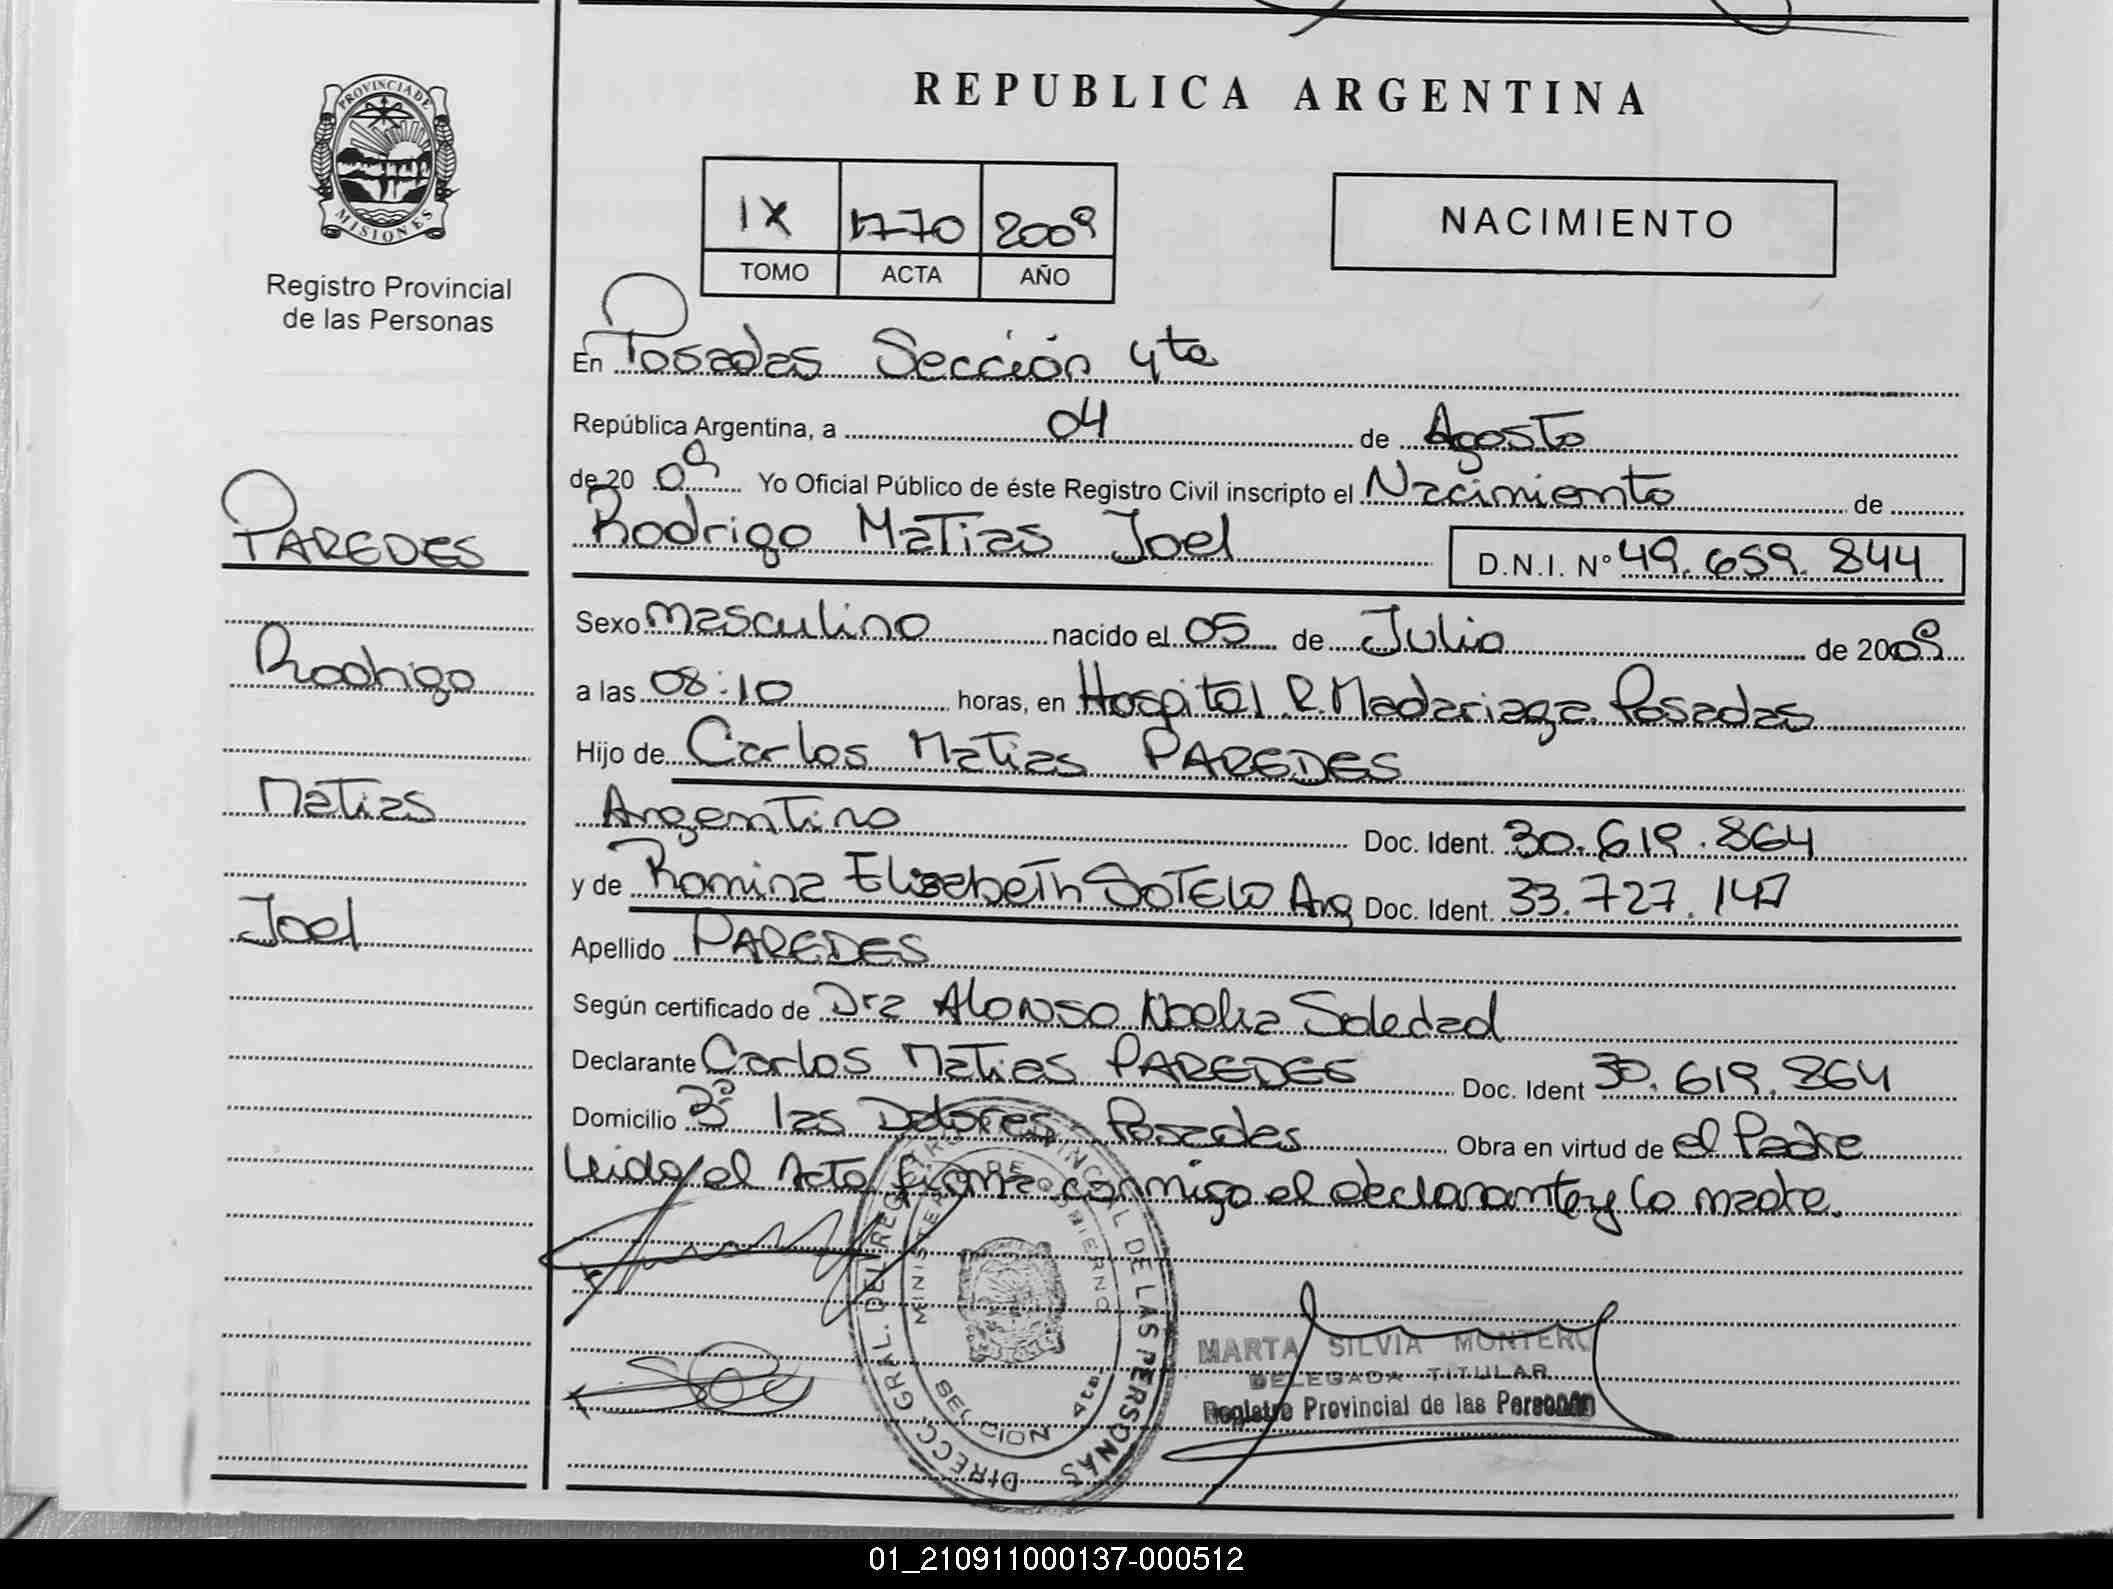 REPUBLICA ARGENTINA
PROVINCIA DE
MISIONES
Registro Provincial
de las Personas
IX 1770 2009
TOMO ACTA AÑO
NACIMIENTO
En Posadas Sección 4ta
República Argentina, a 04 de Agosto
de 20 09 Yo Oficial Público de éste Registro Civil inscripto el Nacimiento de
Rodrigo Matias Joel D.N.I. N° 49.659.844
PAREDES
Rodrigo
Matias
Joel
Sexo masculino nacido el 05 de Julio de 2009
a las 08:10 horas, en Hospital R. Madariaga Posadas
Hijo de Carlos Matias PAREDES
Argentino Doc. Ident. 30.619.864
y de Romina Elisabeth SOTELO Arg Doc. Ident. 33.727.147
Apellido PAREDES
Según certificado de Dra Alonso Noelia Soledad
Declarante Carlos Matias PAREDES Doc. Ident 30.619.864
Domicilio las Dolores Posadas Obra en virtud de el Padre
Leida el Acta firma conmigo el declarante y la madre.
DIRECC. GRAL. DEL REGISTRO PROVINCIAL DE LAS PERSONAS
MINISTERIO DE GOBIERNO
SECCION 4ta
MARTA SILVIA MONTERO
DELEGADA TITULAR
Registro Provincial de las Personas
01_210911000137-000512